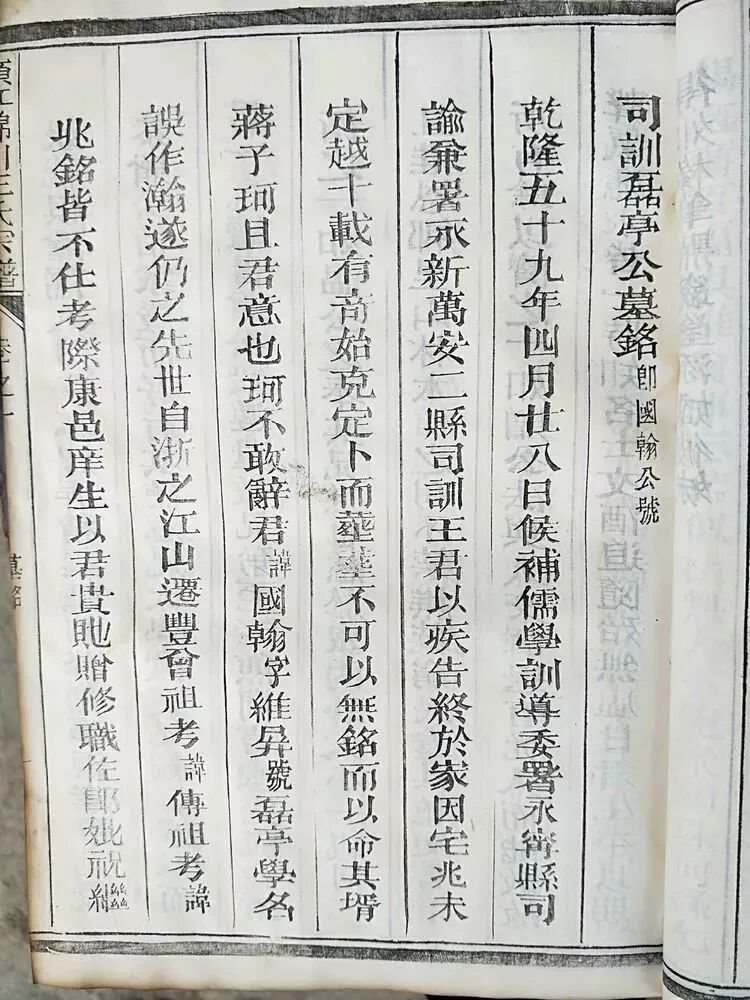 司訓磊亭公墓銘即國翰公號
乾隆五十九年四月廿八日候補儒學訓導委署永甯縣司
諭兼署永新萬安二縣司訓王君以疾告終於家因宅兆未
定越十載有竒始克定卜而塟塟不可以無銘而以命其壻
蔣子珂且君意也珂不敢辭君諱國翰字維昇號磊亭學名
誤作瀚遂仍之先世自浙之江山遷豐曾祖考諱傳祖考諱
兆銘皆不仕考際康邑庠生以君貴貤贈修職佐郎妣祝繼
王氏宗譜
墓銘